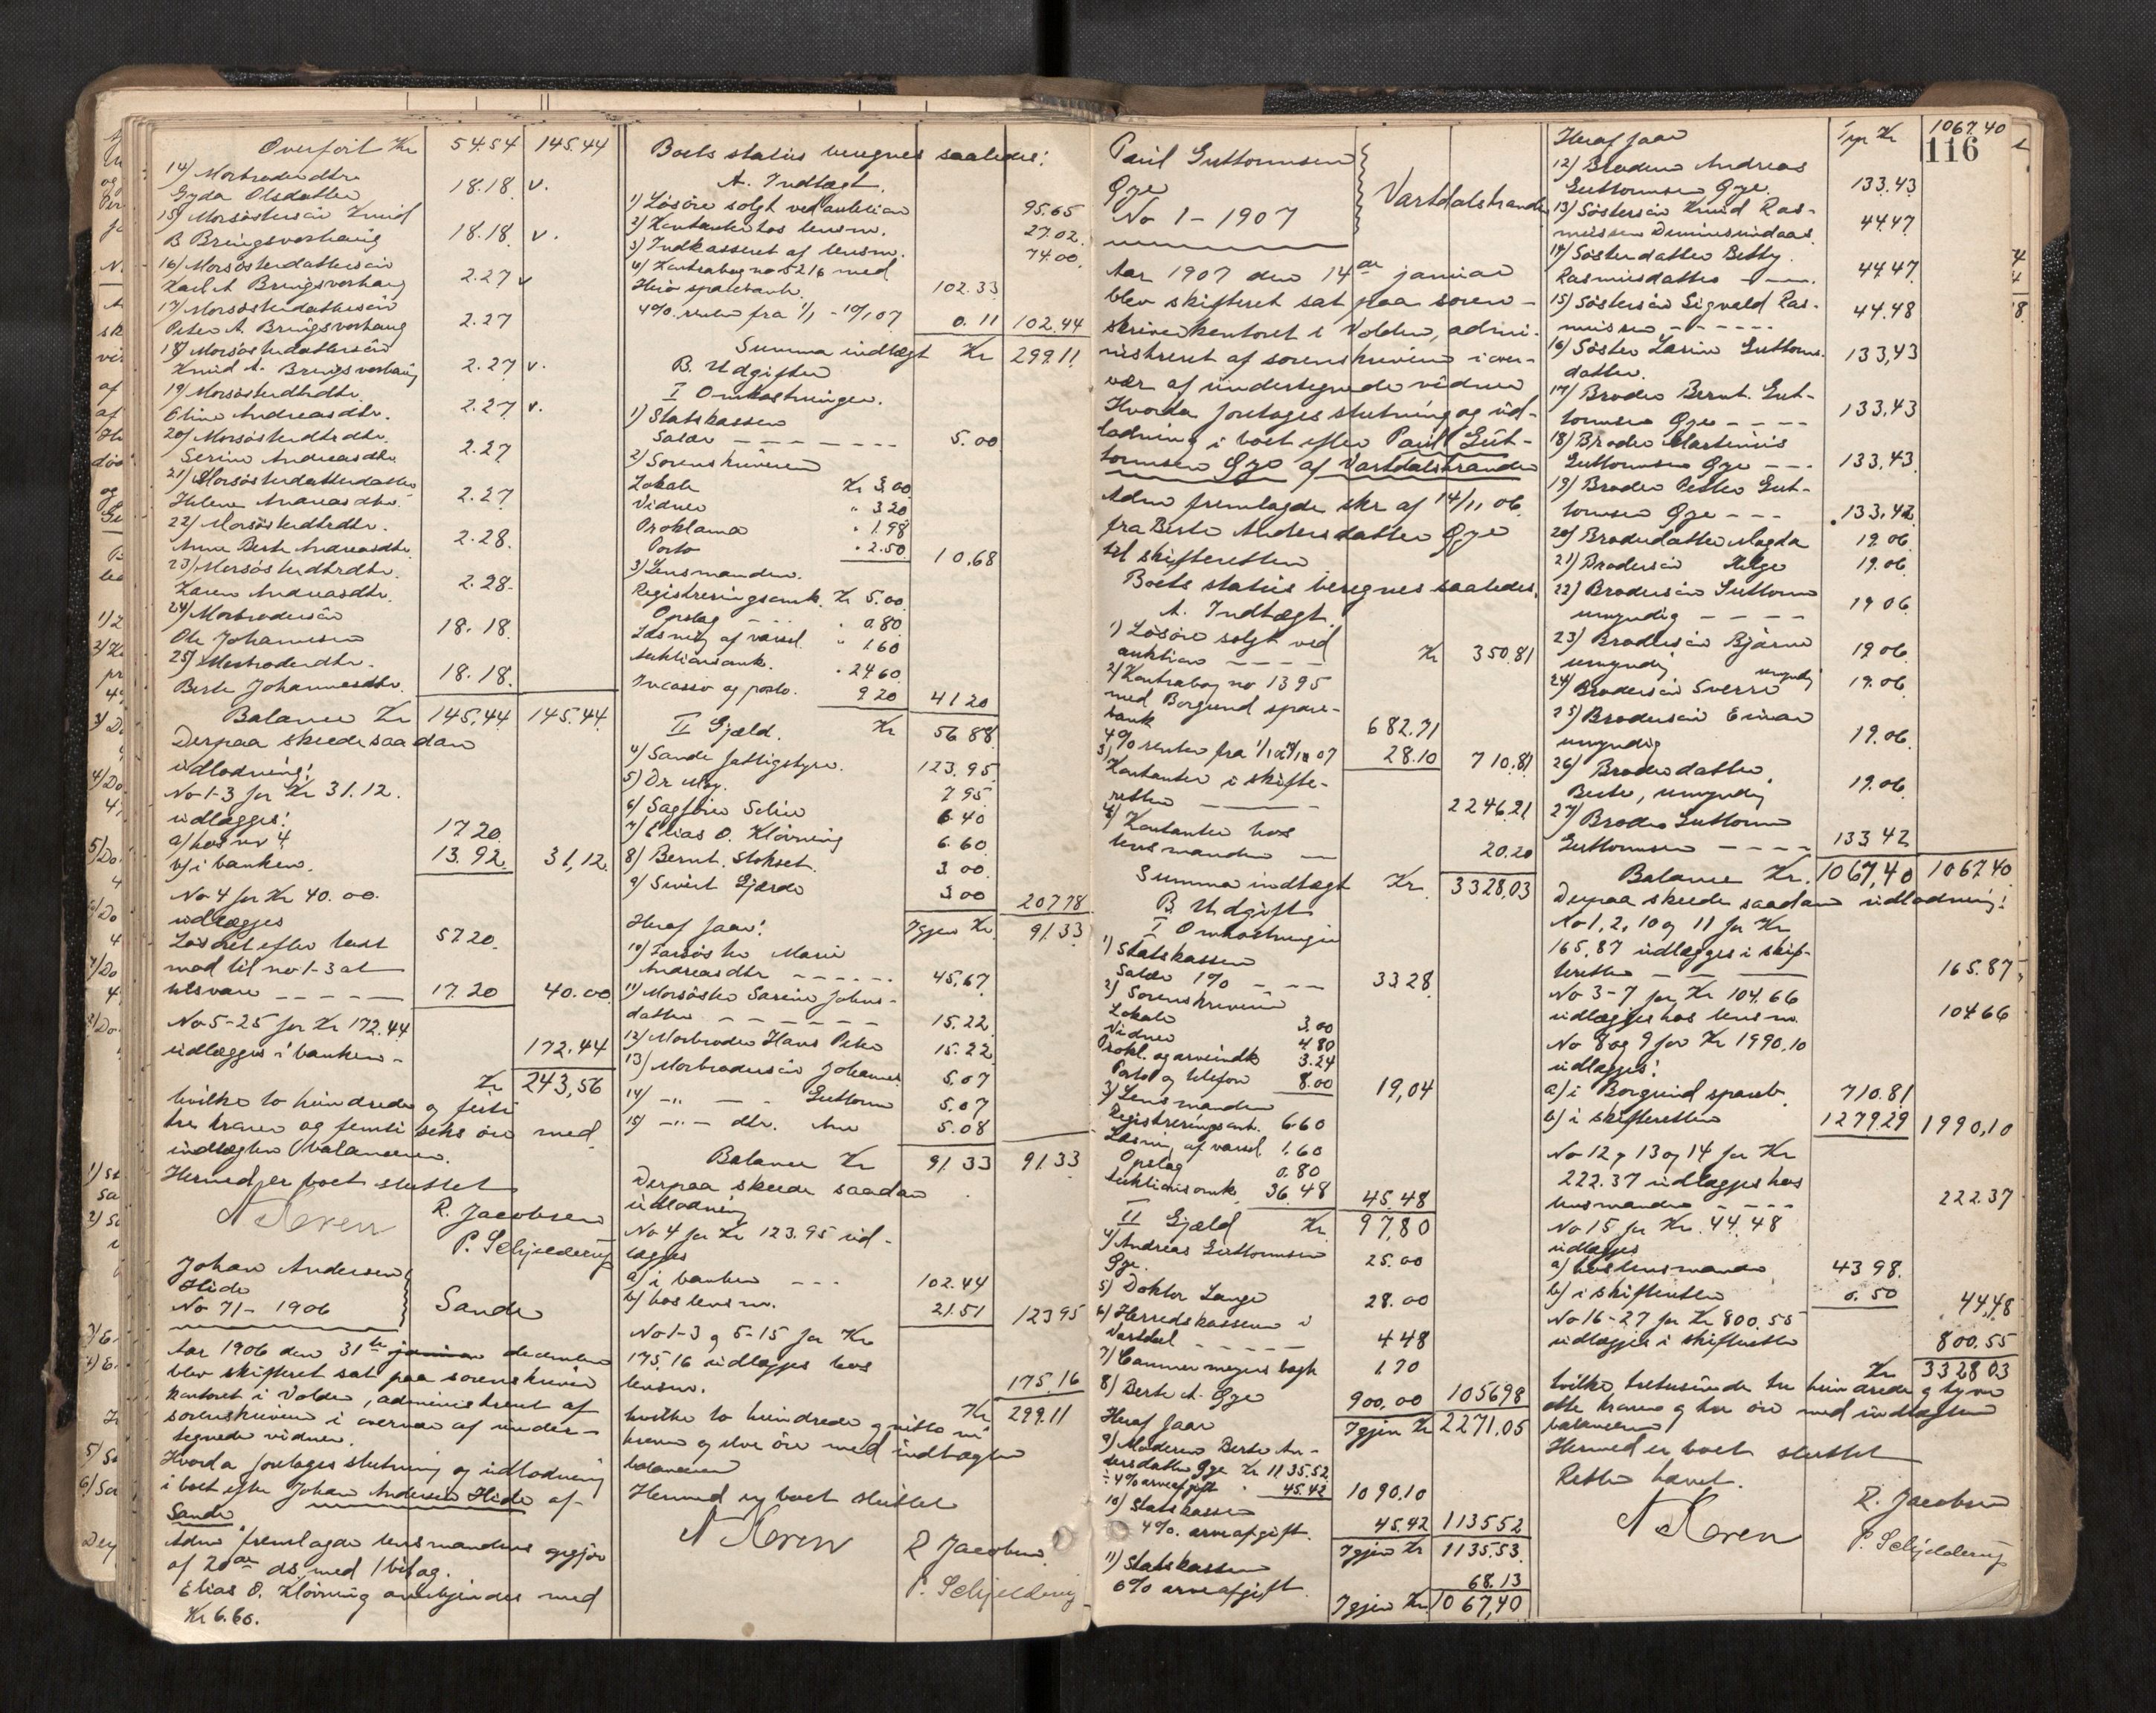 Overført Kr 54.54 145.44
14) Morbroderdtr.
Gyda Olsdatter 18.18 v.
15) Morsøstersøn Knud
B Bringsvorhaug 18.18. v.
16) Morsøsterdattersøn
Karl A Bringsvorhaug 2.27 v
17) Morsøsterdattersøn
Peter A. Bringsvorhaug 2.27
18) Morsøsterdattersøn
Knud A. Bringsvorhaug 2.27 v.
19) Morsøsterdtrdtr.
Eline Andreasdtr. 2.27 v.
20) Morsøsterdtrdtr.
Serine Andreasdtr. 2.27
21) Morsøsterdatterdatter
Helene Andreasdtr. 2.27
22) Morsøsterdtrdtr.
Anne Berte Andreasdtr. 2.28.
23) Morsøsterdtrdtr.
Karen Andreasdtr. 2.28.
24) Morbrodersøn
Ole Johannesen 18.18.
25) Morbroderdtr.
Berte Johannesdtr. 18.18.
Balance Kr 145,44 145.44
Derpaa skeede saadan
udlodning:
No 1-3 for Kr 31.12.
udlægges:
a) hos nr 4. 17.20
b) i banken. 13.92. 31,12.
No 4 for Kr 40.00.
udlægges
Løsøret efter takst 57.20.
mod til no 1-3 at
udsvare ----- 17.20 40.00.
No 5-25 for Kr 172.44
udlægges i banken - 172.44
Kr 243,56
hvilke to hundrede og firti
tre kroner og femti seks øre med
indtægten balancerer.
Hermed er boet sluttet
N Koren R. Jacobsen
P. Schjelderup
Johan Andersen
Hide
No 71- 1906 Sande
Aar 1906 den 31te januar december
blev skifteret sat paa sorenskriver
kontoret i Volden, administreret af
sorenskriveren i overvær af under-
tegnede vidner.
Hvorda foretoges slutning og udlodning
i boet efter Johan Andersen Hide af
Sande.
Adm fremlagde lensmandens opgjør
af 20de ds. med 1 bilag.
Elias O. Kløvning anerkjendes med
Kr 6.60.
Boets status beregnes saaledes:
A. Indtægt.
1) Løsøre solgt ved auktion 95.65
2) Kontanter hos lensm. 27.02.
3) Indkasseret af lensm. 74.00.
4) Kontrabog no 5216 med
Herø sparebank. 102.33
4% renter fra 1/1 - 10/1 07 0.11 102.44
Summa indtægt Kr 299.11
B. Udgifter
I Omkostninger.
1) Statskassen
Salær ------- 5.00
2) Sorenskriveren
Lokale Kr 3.00
Vidner " 3.20
Proklama " 1.98
Porto " 2.50 10.68
3) Lensmanden.
Registreringsomk. Kr 5.00
Opslag ---- " 0.80
Læsning af varsel " 1.60
Auktionsomk. " 24.60
Incasso og porto. 9.20 41.20
II Gjæld. Kr 56.88
4) Sande fattigstyre. 123.95
5) Dr Moy. 7.95
6) Sagfører Selin 6.40
7) Elias O. Kløvning 6.60
8) Bernt Stokset. 3.00
9) Sivert Gjærde 3.00 207.78
Heraf faar: Igjen Kr. 91.33
10) Farsøster Marie
Andreasdtr ------ 45,67
11) Morsøster Sarine Johns-
datter ------ 15.22
12) Morbroder Hans Peter 15.22
13) Morbrodersøn Johannes 5.07
14) -"- - Guttorm 5.07
15) -"- dtr. Ane 5.08
Balance Kr 91.33 91.33
Derpaa skeede saadan
udlodning
No 4 for Kr 123.95 ud-
lægges
a) i banken --- 102.44
b) hos lensm. 21.51 123.95
No 1-3 og 5-15 for Kr
175.16 udlægges hos
lensm. 175.16
Kr 299.11
hvilke to hundrede og nitti ni
kroner og elve øre med indtægten
balancerer
Hermed er boet sluttet
N Koren R Jacobsen
P. Schjelderup
Paul Guttormsen
Øye Vartdalstranden
No 1 - 1907
Aar 1907 den 14de januar
blev skifteret sat paa soren-
skriverkontoret i Volden, admi-
nistreret af sorenskriveren i over-
vær af undertegnede vidner
Hvorda foretoges slutning og ud-
lodning i boet efter Paul Gut-
tormsen Øye af Vartdalstranden
Adm fremlagde skr af 14/11 06.
fra Berte Andersdatter Øye
til skifteretten
Boets status beregnes saaledes.
A. Indtægt.
1) Løsøre solgt ved
auktion ---- Kr 350.81
2) Kontrabog no 1395
med Borgund spare-
bank 682.71
4% renter fra 1/1 07 28.10 710.81
3) Kontanter i skifte-
retten ---- 2246.21
4) Kontanter hos
lensmanden -- 20.20
Summa indtægt Kr. 3328,03
B. Udgift
I Omkostninger
1) Statskassen
Salær 1% --- 33.28
2) Sorenskriveren
Lokale 3.00
Vidner 4.80
Prokl. og arveindk 3.24
Porto og telefon 8.00 19,04
3) Lensmanden
Registreringsomk. 6.60
Læsning af varsel. 1.60
Opslag 0.80
Auktionsomk 36.48 45.48
II Gjæld Kr. 97,80
4) Andreas Guttormsen
Øye. 25.00
5) Doktor Lange 28.00
6) Herredskassen i
Vartdal ----- 4.48
7) Cammermeyers bogh 1.70
8) Berte A. Øye 900.00 1056.98
Heraf faar Igjen Kr 2271.05
9) Moderen Berte An-
dersdatter Øye Kr 1135.52
÷ 4% arveafgift " 45.42 1090.10
10) Statskassen
4% arveafgift. 45.42 1135.52
Igjen Kr 1135.53.
11) Statskassen
6% arveafgift. 68.13
Igjen Kr. 1067,40
116
Heraf faar Igjen Kr 1067.40
12) Broderen Andreas
Guttormsen Øye. 133.43
13) Søstersøn Knud Ras-
mussen 44.47
14) Søsterdatter Betty
Rasmusdatter ---- 44.47
15) Søstersøn Sigvald Ras-
mussen ----- 44.48
16) Søster Larine Guttorms-
datter. 133,43
17) Broder Bernt Gut-
tormsen Øye ---- 133.43
18) Broder Martinius
Guttormsen Øye --- 133.43
19) Broder Petter Gut-
tormsen Øye --- 133.42
20) Broderdatter Magda 19.06
21) Brodersøn Helge 19.06
22) Brodersøn Guttorm
umyndig ---- 19.06
23) Brodersøn Bjarne
umyndig 19.06
24) Brodersøn Sverre umyndig 19.06
25) Brodersøn Einar
umyndig 19.06.
26) Broderdatter
Berte, umyndig 19.06
27) Broder Guttorm
Guttormsen ---- 133.42
Balance Kr. 1067,40 1067.40
Derpaa skeede saadan udlodning:
No 1, 2, 10 og 11 for Kr
165.87 udlægges i skif-
teretten ---- 165.87
No 3-7 for Kr 104.66
udlægges hos lensm. 104.66
No 8 og 9 for Kr 1990.10
udlægges:
a) i Borgund spareb. 710.81
b) i skifteretten 1279.29 1990,10
No 12, 13 og 14 for Kr
222.37 udlægges hos
lensmanden ---- 222.37
No 15 for Kr. 44.48
udlægges
a) hos lensmanden 43.98.
b) i skifteretten 0.50 44,48
No 16-27 for Kr 800.55
udlægges i skifteretten 800.55
Kr 3328.03
hvilke tretusinde tre hundrede og tyve
otte kroner og tre øre med indtægten
balancerer
Hermed er boet sluttet
Retten hævet.
N Koren R. Jacobsen
P. Schjelderup